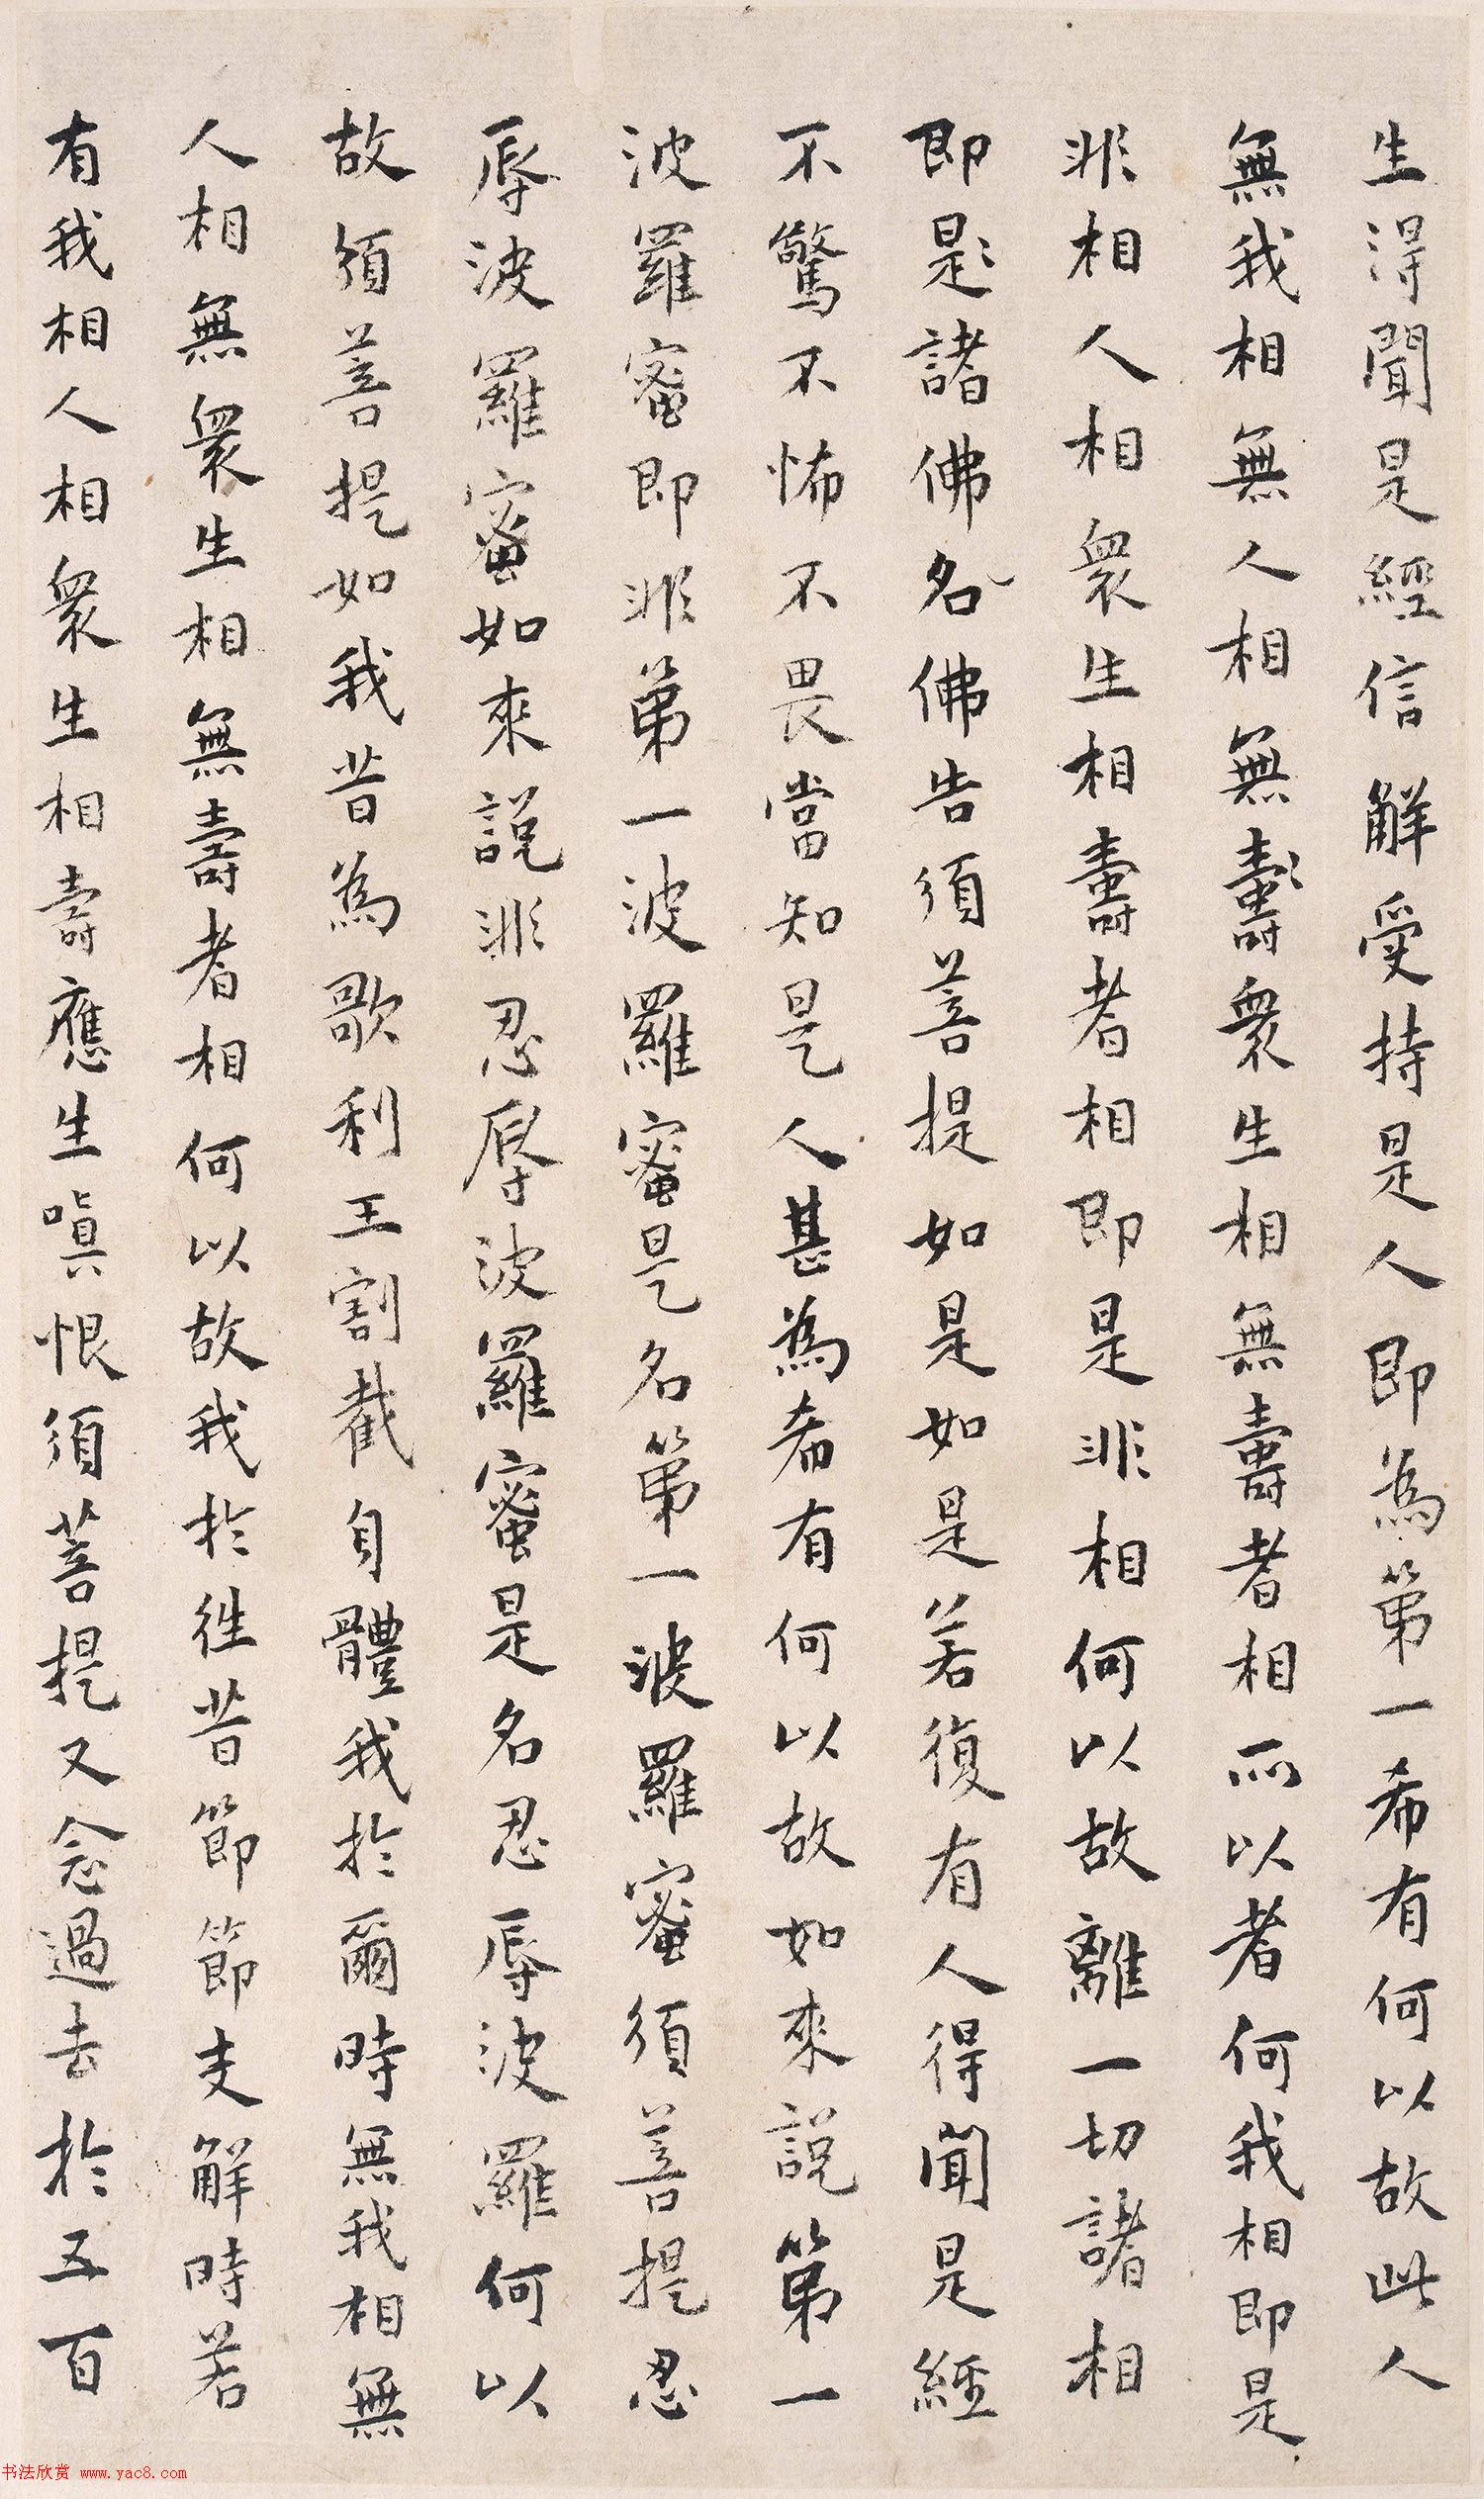 生得聞是經信解受持是人即為第一希有何以故此人
無我相無人相無壽衆生相無壽者相所以者何我相即是
非相人相衆生相壽者相即是非相何以故離一切諸相
即是諸佛名佛告須菩提如是如是若復有人得聞是經
不驚不怖不畏當知是人甚為希有何以故如來說第一
波羅蜜即非第一波羅蜜是名第一波羅蜜須菩提忍
辱波羅蜜如來說非忍辱波羅蜜是名忍辱波羅何以
故須菩提如我昔為歌利王割截身體我於爾時無我相無
人相無衆生相無壽者相何以故我於往昔節節支解時若
有我相人相衆生相壽應生嗔恨須菩提又念過去於五百
书法欣赏 www.yac8.com